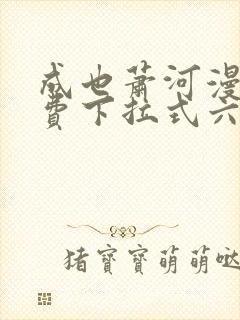 成也萧河漫
费下拉式六
猪寳寳萌萌哒